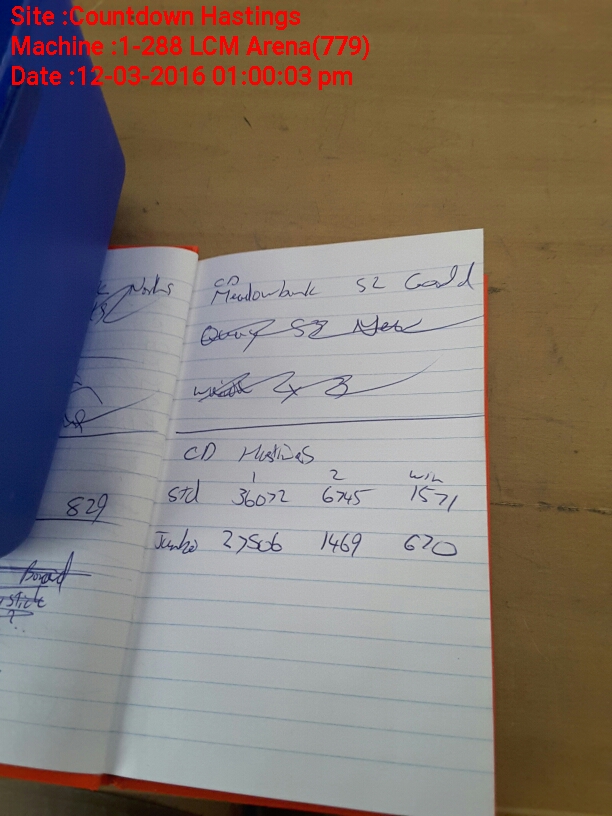 Site :Countdown Hastings
Machine :1-288 LCM Arena(779)
Date :12-03-2016 01:00:03 pm
CD
Meadowbank S2 Good
S2
2 x 3
CD Hastings
1 2 win
Std 36072 6745 1571
Jumbo 27506 1469 620
829
Board